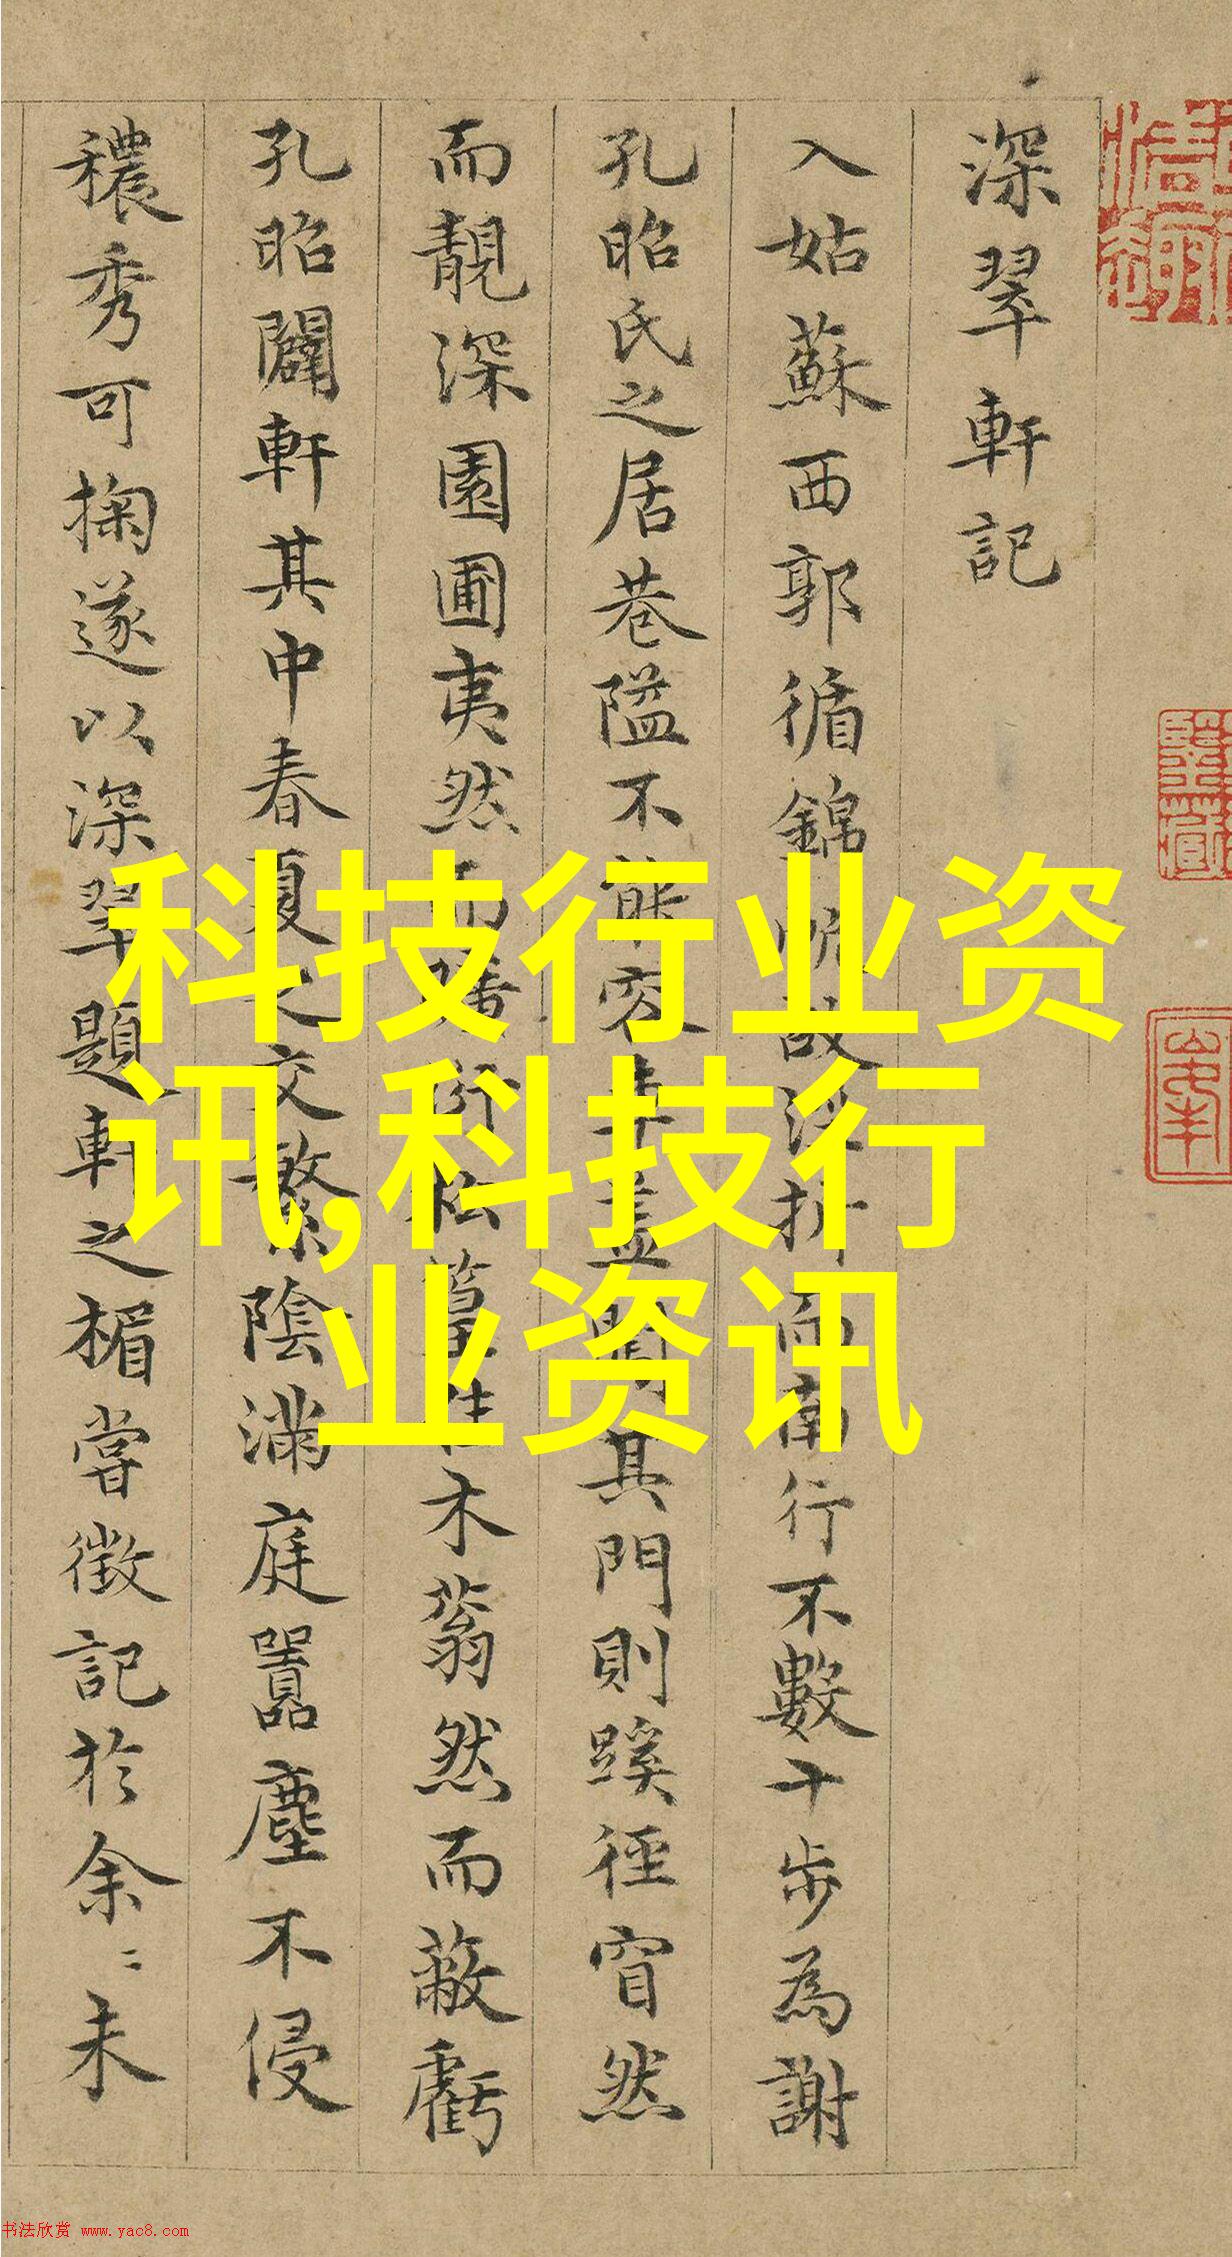 深翠軒記
入姑蘇西郭循錦帆故涇折而南行不數十步為謝
孔昭氏之居巷隘不能容車蓋閴其門則蹊徑窅然
而靚深園圃夷然而墻衍松篁佳木蓊然而蔽虧
孔昭闢軒其中春夏之交繁陰滿庭囂塵不侵
穠秀可掬遂以深翠題軒之楣嘗徵記於余〻未
科技行业资
讯,科技行
业资讯
書法欣赏 www.yac8.com